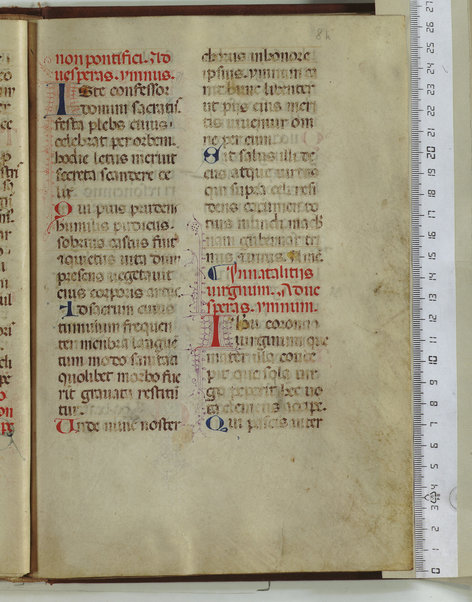 non pontifici. Ad
vesperas. ymnus.
Iste confessor
domini sacratus
festa plebs cuius
celebrat per orbem
hodie letus meruit
secreta scandere ce
li
Qui pius prudens
humilis pudicus
sobrius castus fuit
et quietus vita dum
presens vegetavit
eius corporis artus.
Ad sacrum cuius
tumulum frequen
ter membra langue
tum modo sanitati
quolibet morbo fue
rit gravata restitu
tur.
Unde nunc noster
chorus in honore
ipsius. ymnum ca
nit hunc libenter
ut piis eius meri
tis iuvemur om
ne per eum.
Sit salus illi de
cus atque virtus
qui supra celi resi
dens cacumen to
tius mundi mach
nam gubernat tri
nus et unus. Amen.
In nataliciis
virginum. Ad ve
speras. ymnum.
Ihesu corona
virginum que
mater illa conce
pit que sola vir
go peperit hec vo
ta clemens accipe.
Qui pascis inter